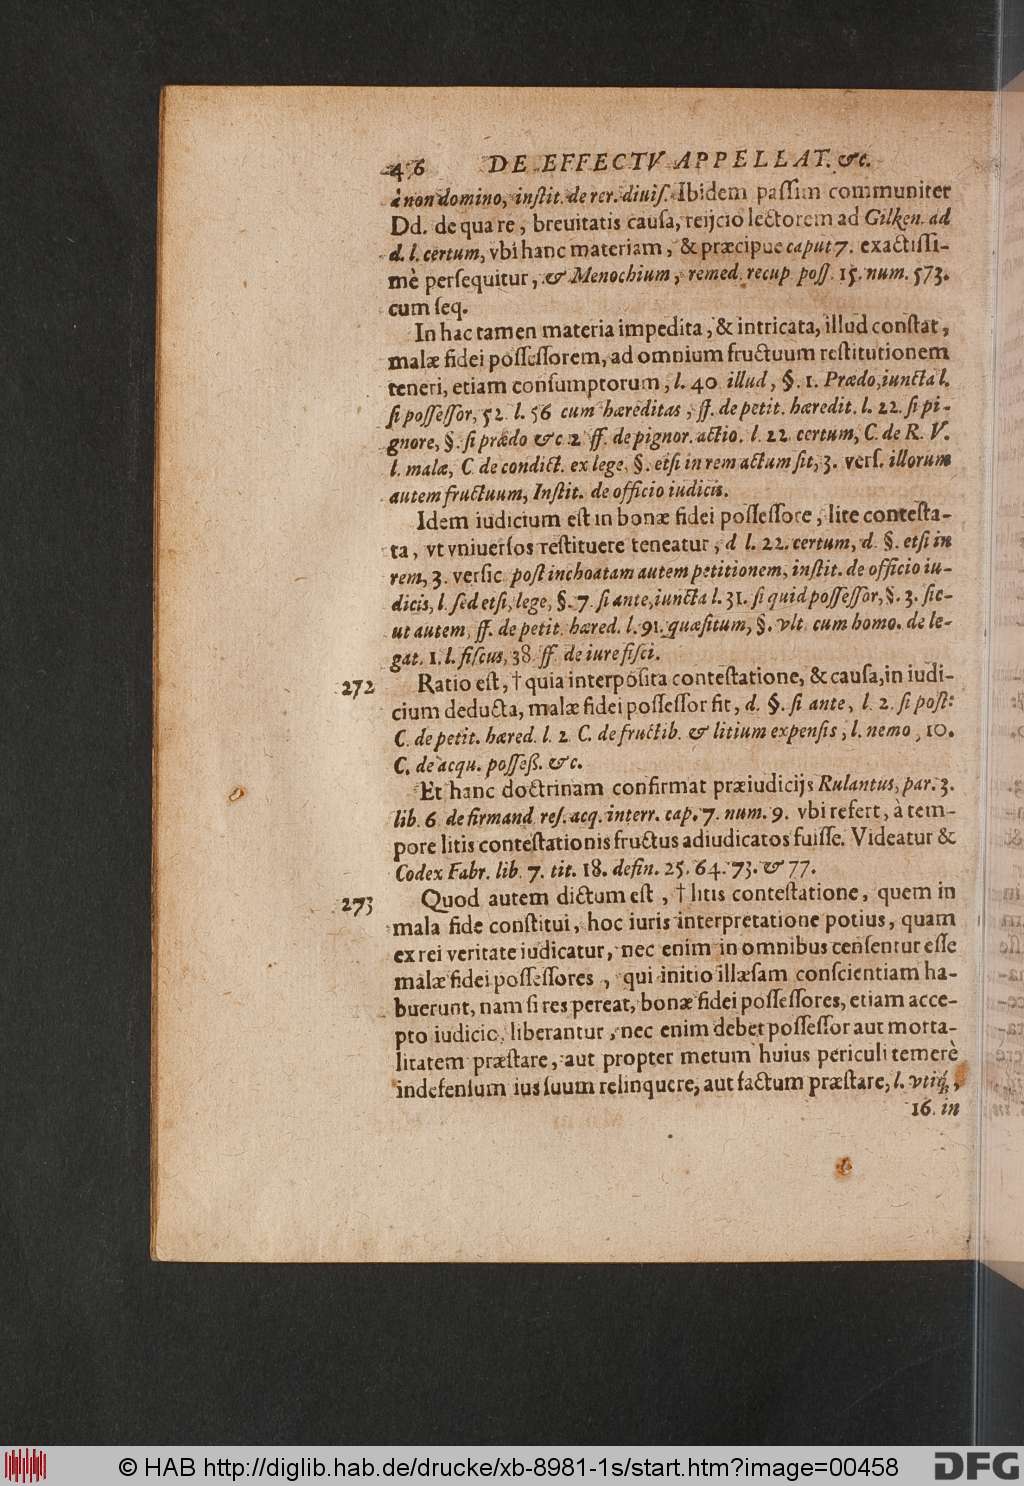 46 DE EFFECTV APPELLAT. &c.
à non domino, inſtit. de rer. diuiſ. Ibidem paſſim communiter
Dd. de qua re, breuitatis cauſa, reijcio lectorem ad Gilken. ad
d. l. certum, vbi hanc materiam, & præcipue caput 7. exactiſſi-
mè perſequitur, & Menochium, remed. recup. poſſ. 15. num. 573.
cum ſeq.
In hac tamen materia impedita, & intricata, illud conſtat,
malæ fidei poſſeſſorem, ad omnium fructuum reſtitutionem
teneri, etiam conſumptorum, l. 40 illud, §. 1. Prædo, iuncta l.
ſi poſſeſſor, 52. l. 56 cum hæreditas, ff. de petit. hæredit. l. 22. ſi pi-
gnore, §. ſi prædo &c 2 ff. de pignor. actio. l. 22 certum, C. de R. V.
l. malæ, C de condict. ex lege, §. etſi in rem actum ſit, 3. verſ. illorum
autem fructuum, Inſtit. de officio iudicis.
Idem iudicium eſt in bonæ fidei poſſeſſore, lite conteſta-
ta, vt vniuerſos reſtituere teneatur, d l. 22. certum, d. §. etſi in
rem, 3. verſic poſt inchoatam autem petitionem, inſtit. de officio iu-
dicis, l. ſed etſi, lege, §. 7. ſi ante, iuncta l. 31. ſi quid poſſeſſor, §. 3. ſic-
ut autem, ff. de petit. hæred. l. 91. quæſitum, §. vlt. cum homo. de le-
gat. 1. l. fiſcus, 38. ff. de iure fiſci.
272 Ratio eſt, † quia interpoſita conteſtatione, & cauſa, in iudi-
cium deducta, malæ fidei poſſeſſor fit, d. §. ſi ante, l. 2. ſi poſt:
C. de petit. hæred. l. 2 C. de fructib. & litium expenſis, l. nemo, 10.
C. de acqu. poſſeß. &c.
Et hanc doctrinam confirmat præiudicijs Rulantus, par. 3.
lib. 6 de firmand reſ. acq. interr. cap. 7. num. 9. vbi refert, à tem-
pore litis conteſtationis fructus adiudicatos fuiſſe. Videatur &
Codex Fabr. lib. 7. tit. 18. defin. 25. 64. 73. & 77.
273 Quod autem dictum eſt, † litis conteſtatione, quem in
mala fide conſtitui, hoc iuris interpretatione potius, quam
ex rei veritate iudicatur, nec enim in omnibus cenſentur eſſe
malæ fidei poſſeſſores, qui initio illæſam conſcientiam ha-
buerunt, nam ſi res pereat, bonæ fidei poſſeſſores, etiam acce-
pto iudicio, liberantur, nec enim debet poſſeſſor aut morta-
litatem præſtare, aut propter metum huius periculi temerè
indefenſum ius ſuum relinquere, aut factum præſtare, l. vtiq́;,
16. in
© HAB http://diglib.hab.de/drucke/xb-8981-1s/start.htm?image=00458
DFG